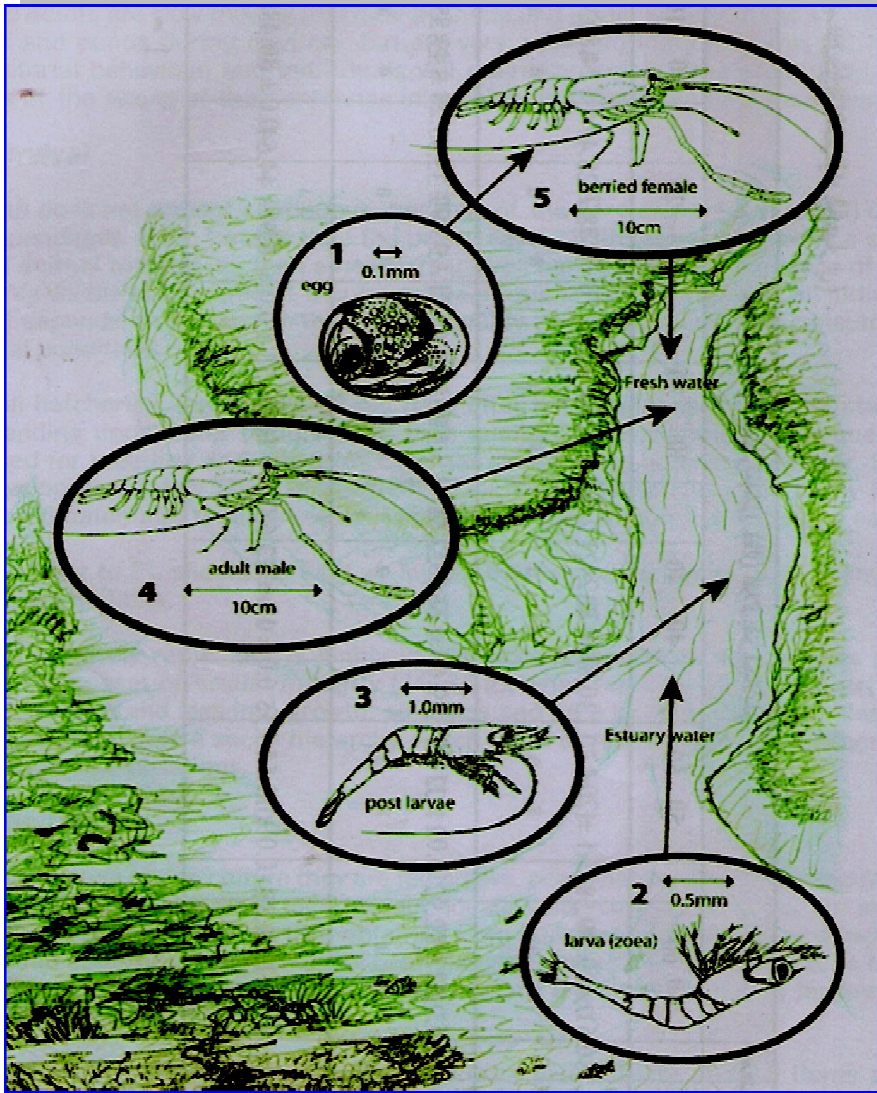 5
berried female
10cm
1
0.1mm
egg
Fresh water
adult male
4
10cm
3
1.0mm
Estuary water
post larvae
2
0.5mm
larva (zoea)